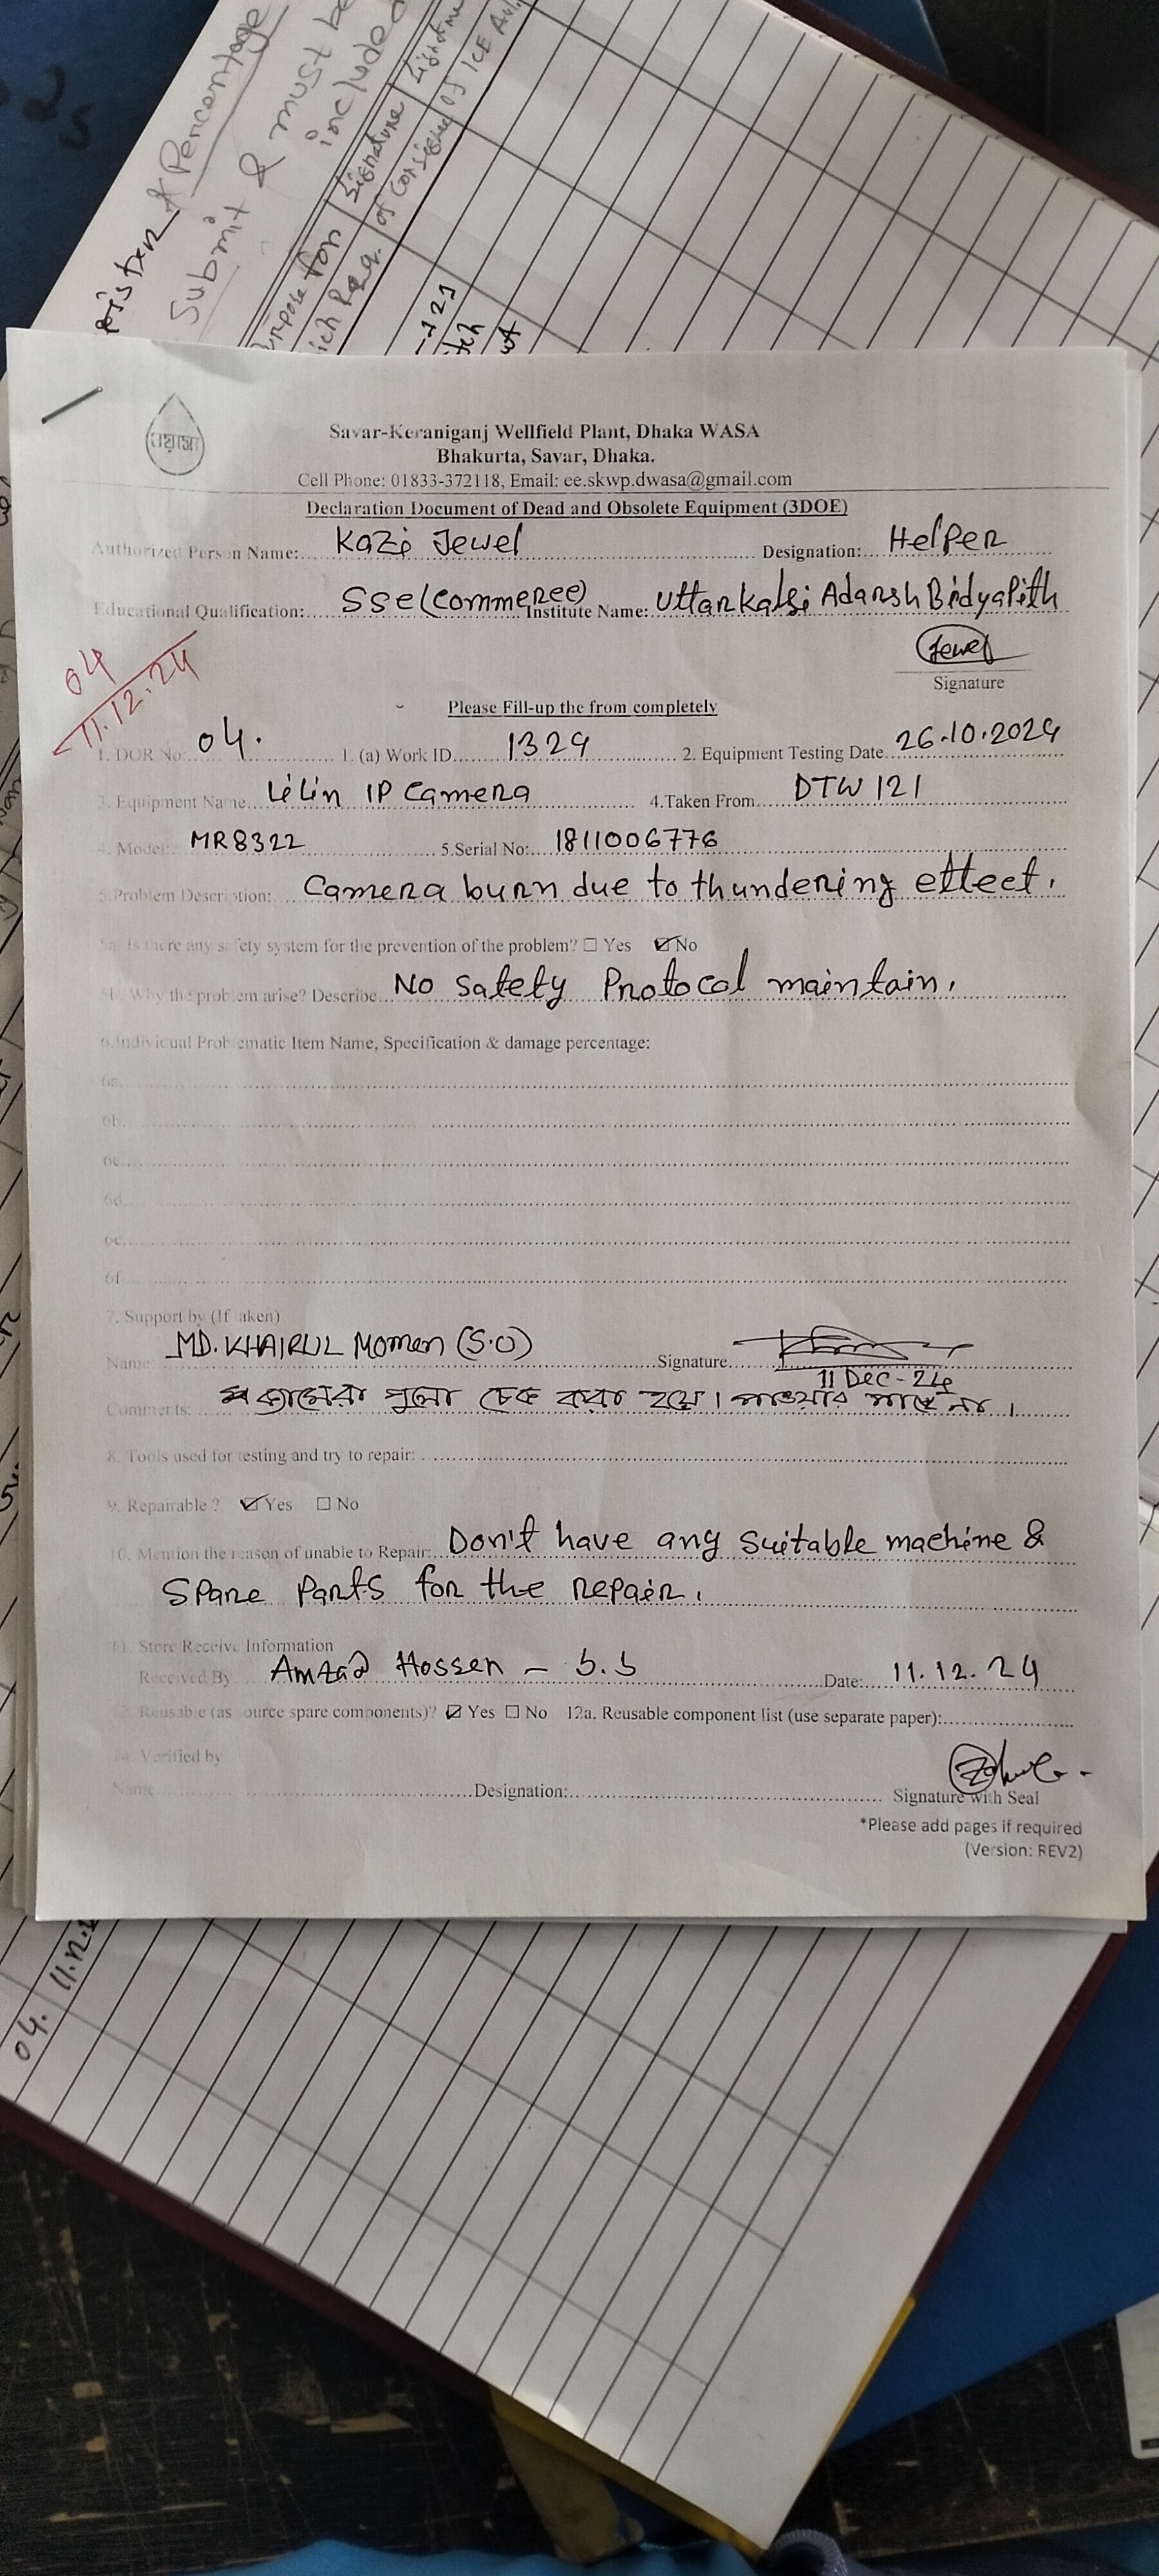 Percentage
Submit & must be
included
Signature
04.
ওয়াসা
Savar-Keraniganj Wellfield Plant, Dhaka WASA
Bhakurta, Savar, Dhaka.
Cell Phone: 01833-372118, Email: ee.skwp.dwasa@gmail.com
Declaration Document of Dead and Obsolete Equipment (3DOE)
Authorized Person Name: Kazi Jewel Designation: Helper
Educational Qualification: SSc (commerce) Institute Name: Uttarkalsi Adarsh Bidyapith
Jewel
Signature
04
11.12.24
Please Fill-up the from completely
1. DOR No: 04. 1. (a) Work ID 1329 2. Equipment Testing Date 26.10.2024
3. Equipment Name Lilin IP Camera 4.Taken From DTW 121
4. Model: MR8322 5.Serial No: 1811006776
5.Problem Description: Camera burn due to thundering effect.
5a. Is there any safety system for the prevention of the problem? ☐ Yes ☑ No
5b. Why the problem arise? Describe No safety Protocal maintain.
6.Individual Problematic Item Name, Specification & damage percentage:
6a.
6b.
6c.
6d.
6e.
6f.
7. Support by (If taken)
Name: MD. KHAIRUL Momen (S.O) Signature
11 Dec-24
Comments: চেক করা হয়।
8. Tools used for testing and try to repair:
9. Repairable ? ☑ Yes ☐ No
10. Mention the reason of unable to Repair: Don't have any suitable machine &
Spare Parts for the repair.
11. Store Receive Information
Received By Amzad Hossen - S.S Date: 11.12.24
12. Reusable (as source spare components)? ☑ Yes ☐ No 12a. Reusable component list (use separate paper):
Verified by
Name Designation: Signature with Seal
*Please add pages if required
(Version: REV2)